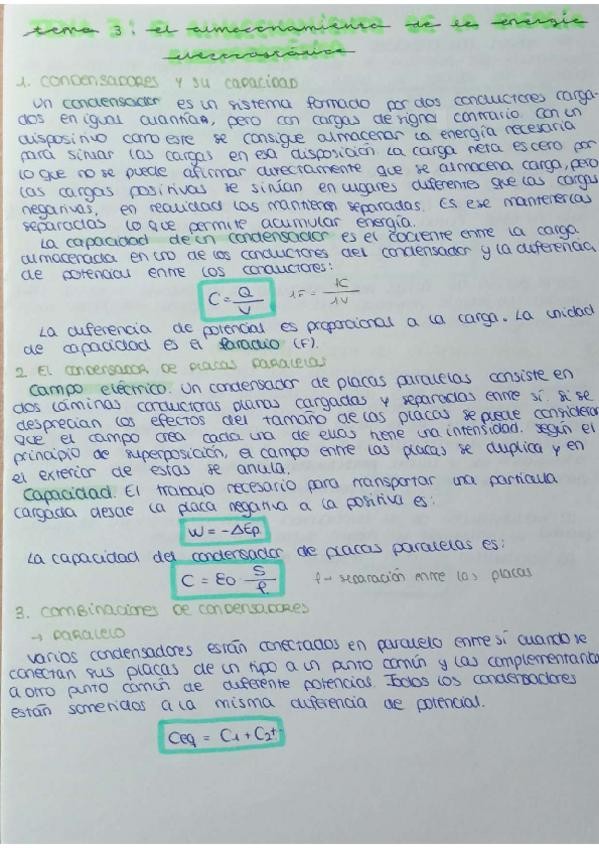 tema 3: el almacenamiento de la energía
electrostática
1. CONDENSADORES Y SU CAPACIDAD
Un condensador es un sistema formado por dos conductores carga-
dos en igual cuantía, pero con cargas de signo contrario. Con un
dispositivo como este se consigue almacenar la energía necesaria
para situar las cargas en esa disposición. La carga neta es cero por
lo que no se puede afirmar directamente que se almacena carga, pero
las cargas positivas se sitúan en lugares diferentes que las cargas
negativas, en realidad las mantienen separadas. Es ese mantenerlas
separadas lo que permite acumular energía.
La capacidad de un condensador es el cociente entre la carga
almacenada en uno de los conductores del condensador y la diferencia
de potencial entre los conductores:
C = Q/V 1F = 1C/1V
La diferencia de potencial es proporcional a la carga. La unidad
de capacidad es el faradio (F).
2. El CONDENSADOR DE PLACAS PARALELAS
Campo eléctrico. Un condensador de placas paralelas consiste en
dos láminas conductoras planas cargadas y separadas entre sí. Si se
desprecian los efectos del tamaño de las placas se puede considerar
que el campo crea cada una de ellas tiene una intensidad. Según el
principio de superposición, el campo entre las placas se duplica y en
el exterior de estas se anula.
Capacidad. El trabajo necesario para transportar una partícula
cargada desde la placa negativa a la positiva es:
W = -ΔEp
La capacidad del condensador de placas paralelas es:
C = Eo S/l l → separación entre las placas
3. COMBINACIONES DE CONDENSADORES
→ PARALELO
Varios condensadores están conectados en paralelo entre sí cuando se
conectan sus placas de un tipo a un punto común y las complementarias
a otro punto común de diferente potencial. Todos los condensadores
están sometidos a la misma diferencia de potencial.
Ceq = C1 + C2+..